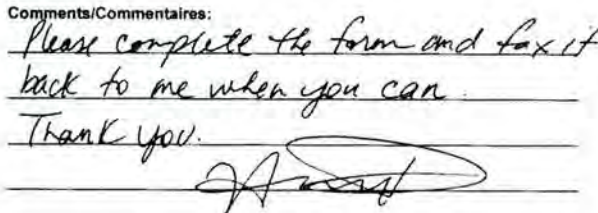 Comments/Commentaires:
Please complete the form and fax it
back to me when you can.
Thank you.